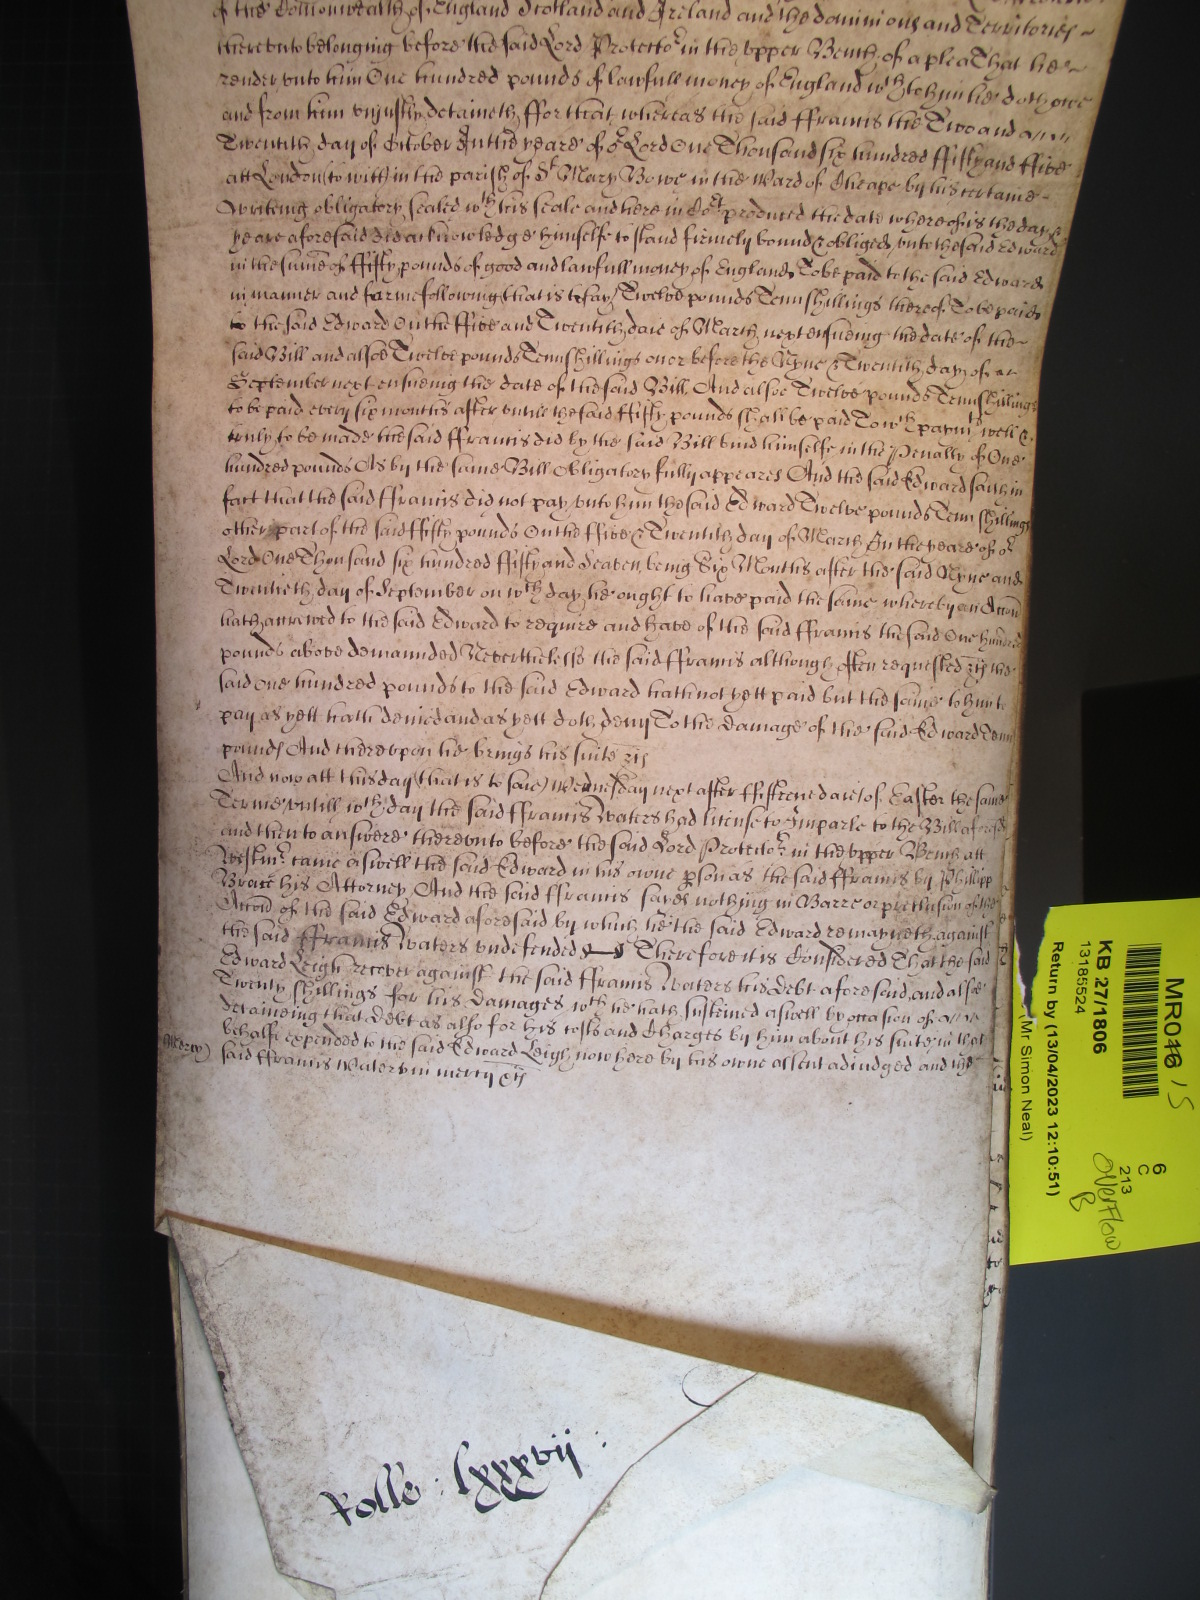 of the Comonwealth of England Scotland and Ireland and the dominions and Territories
thereunto belonging before the said Lord Protector in the upper Bench of a plea That he
render unto him One hundred pounds of lawfull money of England wch to him he doth owe
and from him unjustly detaineth ffor that whereas the said ffrancis the Two and
Twentith day of October In the yeare of or Lord One Thousand six hundred ffifty and ffive
att London (to witt) in the parish of St Mary Bowe in the Ward of Cheape by his certaine
writeing obligatory sealed wth his seale and here in Cort produced the date whereof is the day &
yeare aforesaid did acknowledge himselfe to stand firmely bound & obliged unto the said Edward
in the sume of ffifty pounds of good and lawfull money of England To be paid to the said Edward
in manner and forme following (that is to say) Twelve pounds Tenn shillings thereof To be paid
to the said Edward On the ffive and Twentith daie of March next ensueing the date of the
said Bill and alsoe Twelve pounds Tenn shillings on or before the Nyne & Twentith day of
September next ensueing the date of the said Bill And alsoe Twelve pounds Tenn shillings
to be paid every six months after untill the said ffifty pounds shall be paid To wch paymt well &
truly to be made the said ffrancis did by the said Bill bind himselfe in the Penalty of One
hundred pounds As by the same Bill Obligatory fully appeares And the said Edward saith in
fact that the said ffrancis did not pay unto him the said Edward Twelve pounds Tenn shillings
other part of the said ffifty pounds On the ffive & Twentith day of March In the yeare of or
Lord One Thousand six hundred ffifty and Seaven being Six Months after the said Nyne and
Twentieth day of September on wch day he ought to have paid the same whereby an Accon
hath accrewed to the said Edward to require and have of the said ffrancis the said One hundred
pounds above demaunded Neverthelesse the said ffrancis although often requested &c the
said One hundred pounds to the said Edward hath not yett paid but the same to him to
pay as yett hath denied and as yett doth deny To the damage of the said Edward Tenn
pounds And thereupon he brings his suite &c
And now att this day (that is to saie) Wednesday next after ffifteene daies of Easter the same
Terme untill wch day the said ffrancis Waters had license to Imparle to the Bill aforesd
and then to answere thereunto before the said Lord Protector in the upper Bench att
Westmr came aswell the said Edward in his owne pson as the said ffrancis by Phillipp
his Attorney And the said ffrancis sayes nothing in Barre or preclusion of the
Accon of the said Edward aforesaid by which he the said Edward remayneth against
the said ffrancis Waters undefended Therefore it is Considered That the said
Edward Leigh recover against the said ffrancis Waters his debt aforesaid and alsoe
Twenty shillings for his damages wch he hath susteined aswell by occasion of
detaineing that debt as also for his costs and Charges by him about his suite in that
behalfe expended to the said Edward Leigh now here by his owne assent adiudged and the
said ffrancis Waters in mercy &c
Mercy
Rolle : lxxxvij :
MR016
15
KB 27/1806
13185524
Return by (13/04/2023 12:10:51)
(Mr Simon Neal)
6
C
213
overflow
B